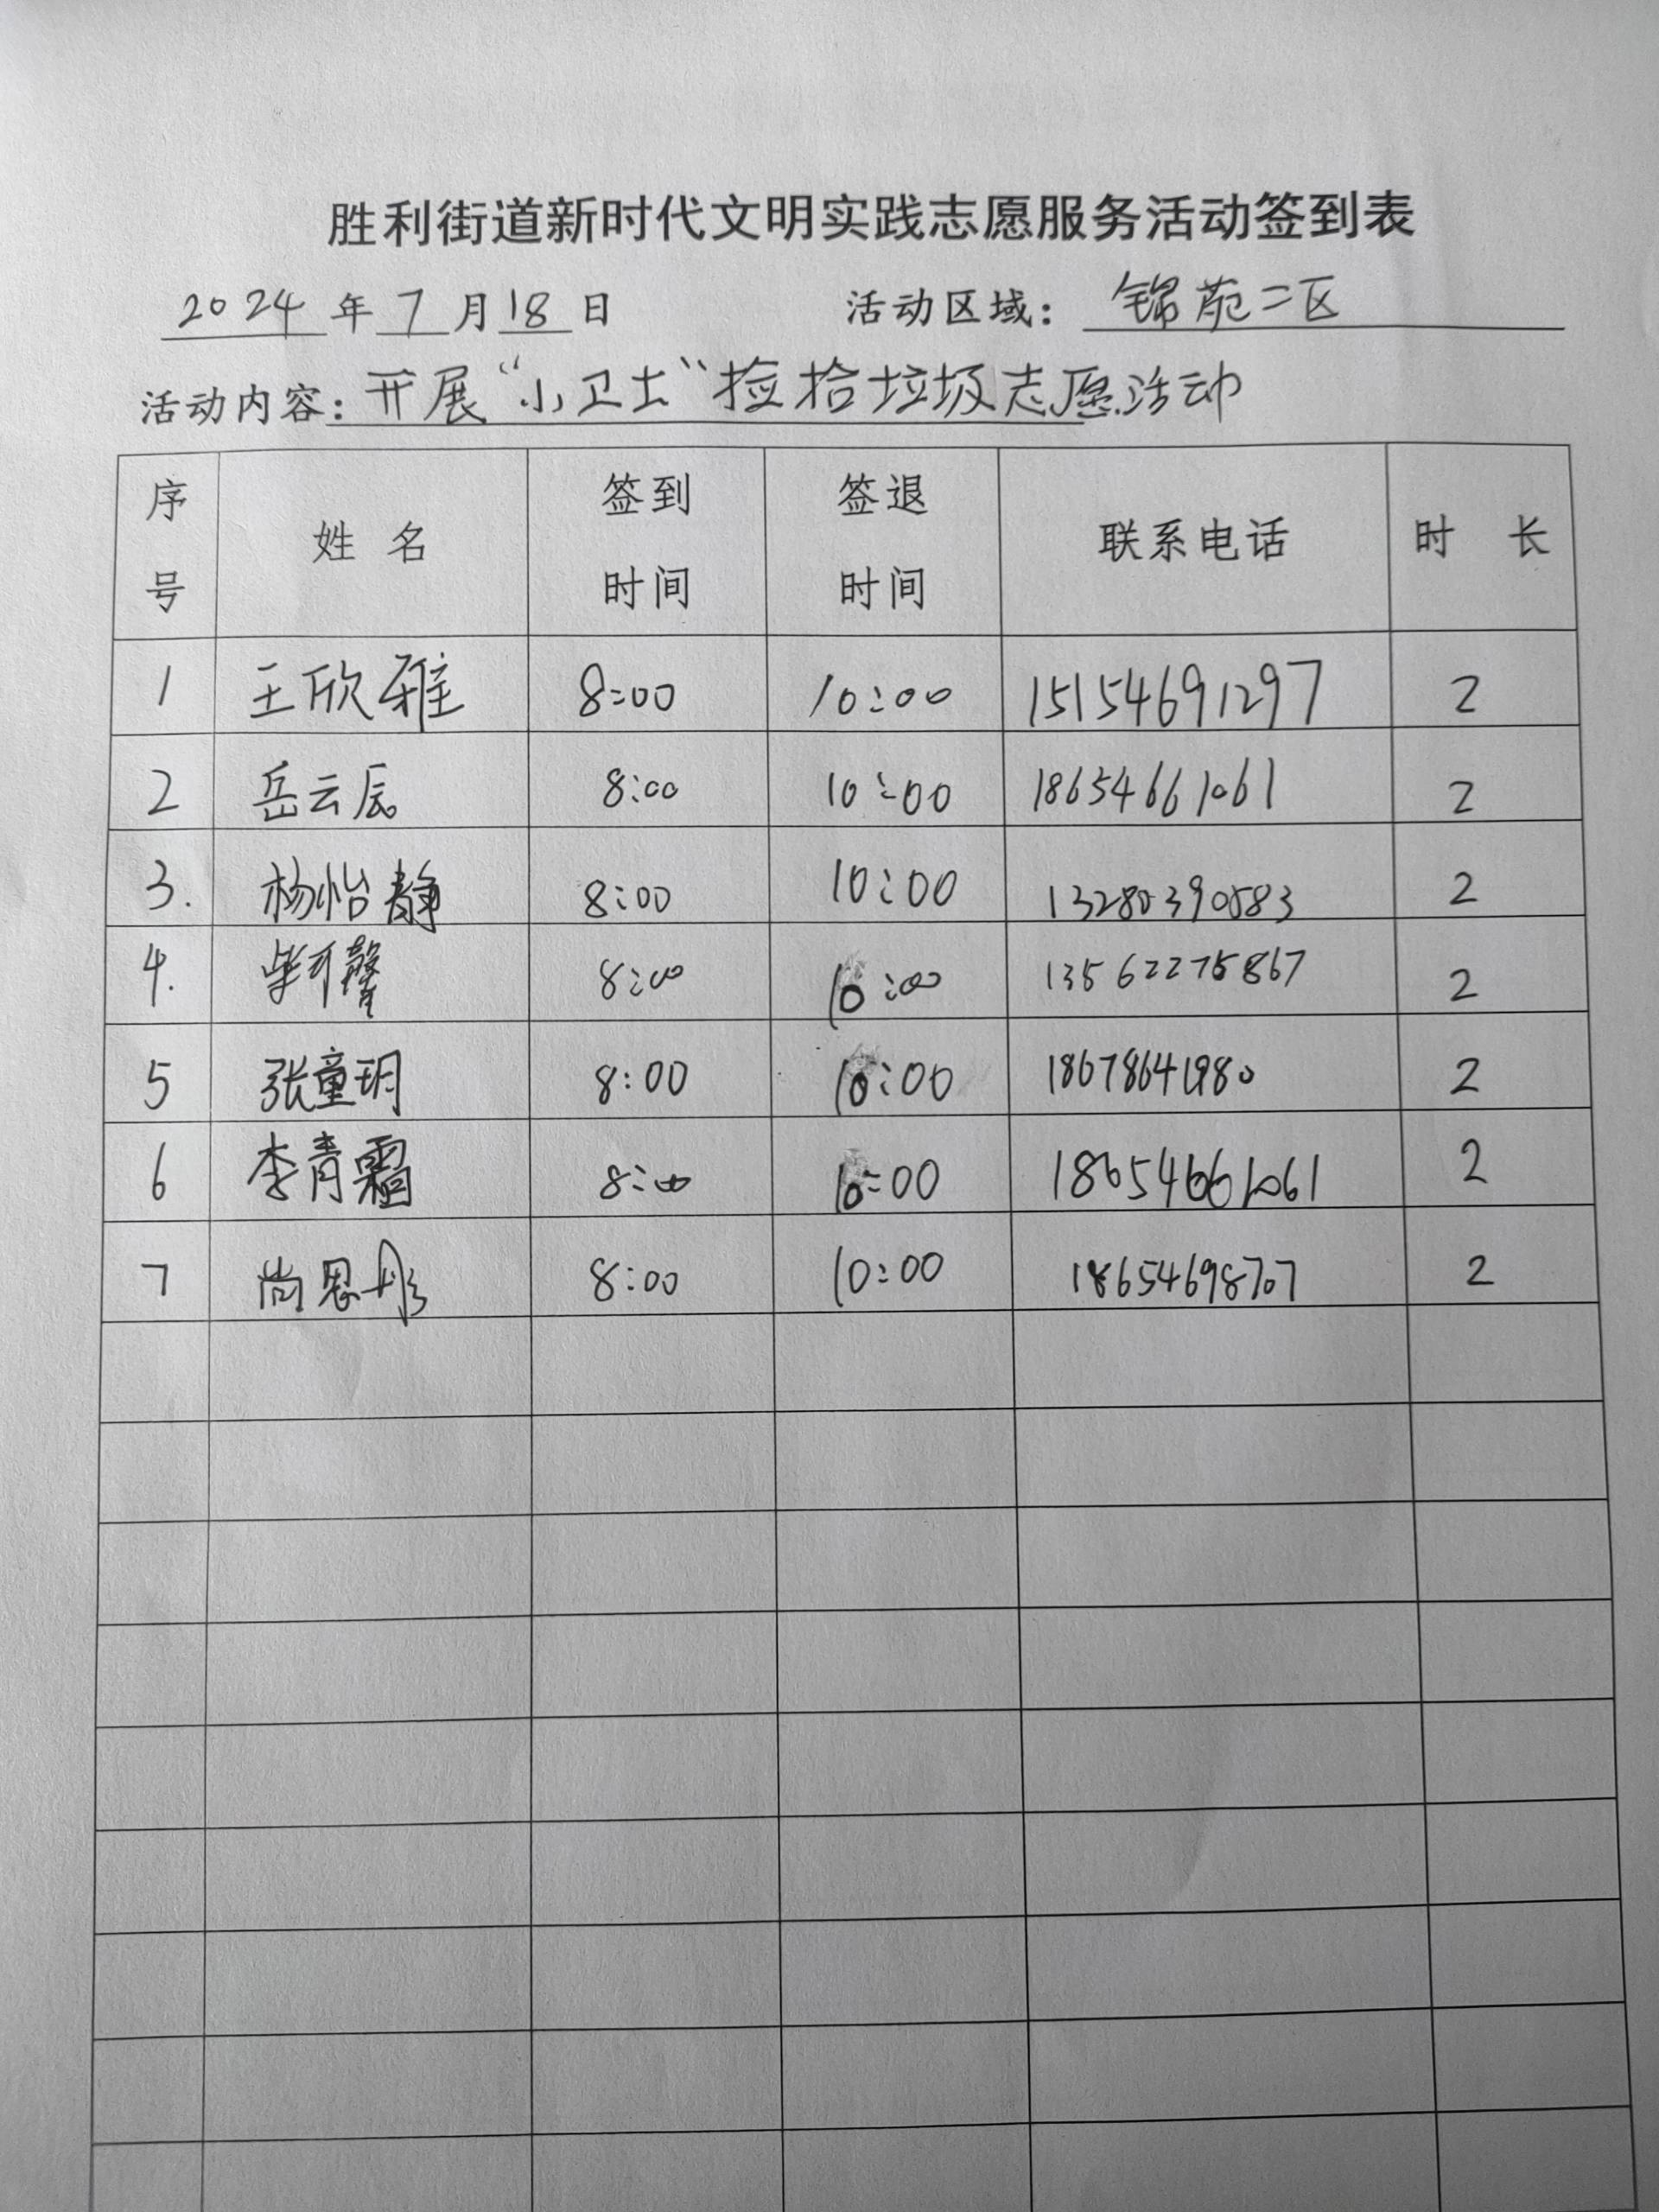 胜利街道新时代文明实践志愿服务活动签到表
2024年7月18日 活动区域：锦苑二区
活动内容：开展“小卫士”捡拾垃圾志愿活动
序号 姓名 签到时间 签退时间 联系电话 时长
1 王欣雅 8:00 10:00 15154691297 2
2 岳云辰 8:00 10:00 18654661061 2
3. 杨怡静 8:00 10:00 13280390583 2
4. 柴可馨 8:00 10:00 13562275867 2
5 张童玥 8:00 10:00 18678641980 2
6 李青霜 8:00 10:00 18654661061 2
7 尚思彤 8:00 10:00 18654698707 2